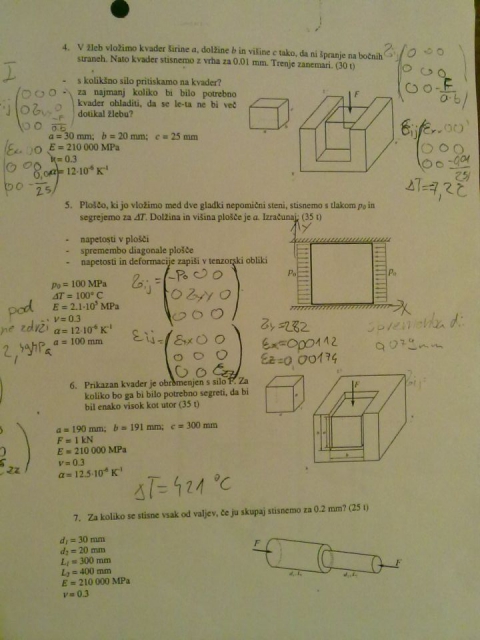 4. V žleb vložimo kvader širine a, dolžine b in višine c tako, da ni špranje na bočnih
straneh. Nato kvader stisnemo z vrha za 0.01 mm. Trenje zanemari. (30 t)
- s kolikšno silo pritiskamo na kvader?
- za najmanj koliko bi bilo potrebno
kvader ohladiti, da se le-ta ne bi več
dotikal žlebu?
a = 30 mm; b = 20 mm; c = 25 mm
E = 210 000 MPa
ν = 0.3
α = 12·10⁻⁶ K⁻¹
F
I
ΔT = 7,2°C
5. Ploščo, ki jo vložimo med dve gladki nepomični steni, stisnemo s tlakom p₀ in
segrejemo za ΔT. Dolžina in višina plošče je a. Izračunaj: (35 t)
- napetosti v plošči
- spremembo diagonale plošče
- napetosti in deformacije zapiši v tenzorski obliki
p₀ = 100 MPa
ΔT = 100° C
E = 2.1·10⁵ MPa
ν = 0.3
α = 12·10⁻⁶ K⁻¹
a = 100 mm
Y
X
p₀
p₀
-P₀ 0 0
0 0 0
εxx 0 0
0 0 0
0 0 εzz
εx=0,00112
εz=0,00174
pod
6. Prikazan kvader je obremenjen s silo F. Za
koliko bo ga bi bilo potrebno segreti, da bi
bil enako visok kot utor (35 t)
a = 190 mm; b = 191 mm; c = 300 mm
F = 1 kN
E = 210 000 MPa
ν = 0.3
α = 12.5·10⁻⁶ K⁻¹
F
ΔT = 421 °C
7. Za koliko se stisne vsak od valjev, če ju skupaj stisnemo za 0.2 mm? (25 t)
d₁ = 30 mm
d₂ = 20 mm
L₁ = 300 mm
L₂ = 400 mm
E = 210 000 MPa
ν = 0.3
F
F